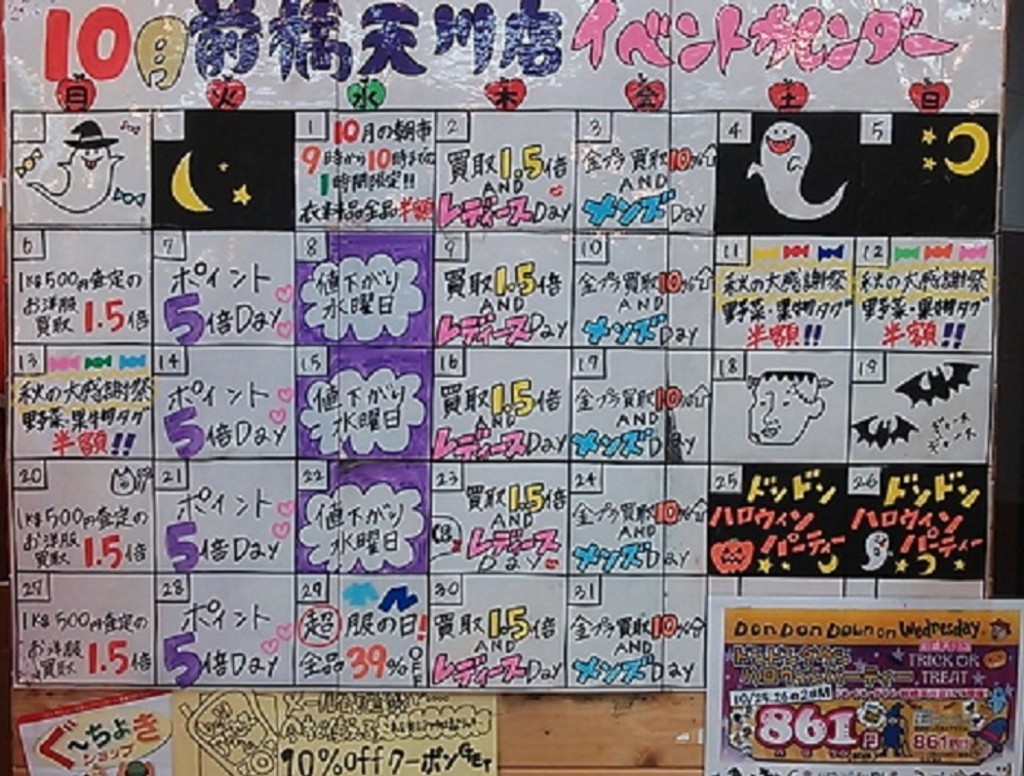 10月 前橋天川店 イベントカレンダー
日 火 水 木 金 土 日
1 10月の朝市
9時から10時までの
1時間限定!!
衣料品全品半額
2
買取1.5倍
AND
レディースDay
3
金プラ買取10%
AND
メンズDay
4
5
6
1kg500円査定の
お洋服
買取1.5倍
7
ポイント
5倍Day
8
値下がり
水曜日
9
買取1.5倍
AND
レディースDay
10
金プラ買取10%
AND
メンズDay
11
秋の大感謝祭
野菜・果物タグ
半額!!
12
秋の大感謝祭
野菜・果物タグ
半額!!
13
秋の大感謝祭
野菜・果物タグ
半額!!
14
ポイント
5倍Day
15
値下がり
水曜日
16
買取1.5倍
AND
レディースDay
17
金プラ買取10%
AND
メンズDay
18
19
20
1kg500円査定の
お洋服
買取1.5倍
21
ポイント
5倍Day
22
値下がり
水曜日
23
買取1.5倍
AND
レディース
Day
24
金プラ買取10%
AND
メンズDay
25
ドンドン
ハロウィン
パーティー
26
ドンドン
ハロウィン
パーティー
27
1kg500円査定の
お洋服
買取1.5倍
28
ポイント
5倍Day
29
超服の日!
全品39%OFF
30
買取1.5倍
AND
レディースDay
31
金プラ買取10%
AND
メンズDay
Don Don Down on Wednesday
ハロウィンパーティー
TRICK OR
TREAT
861円
ぐ〜ちょき
ショップ
10%offクーポンGET